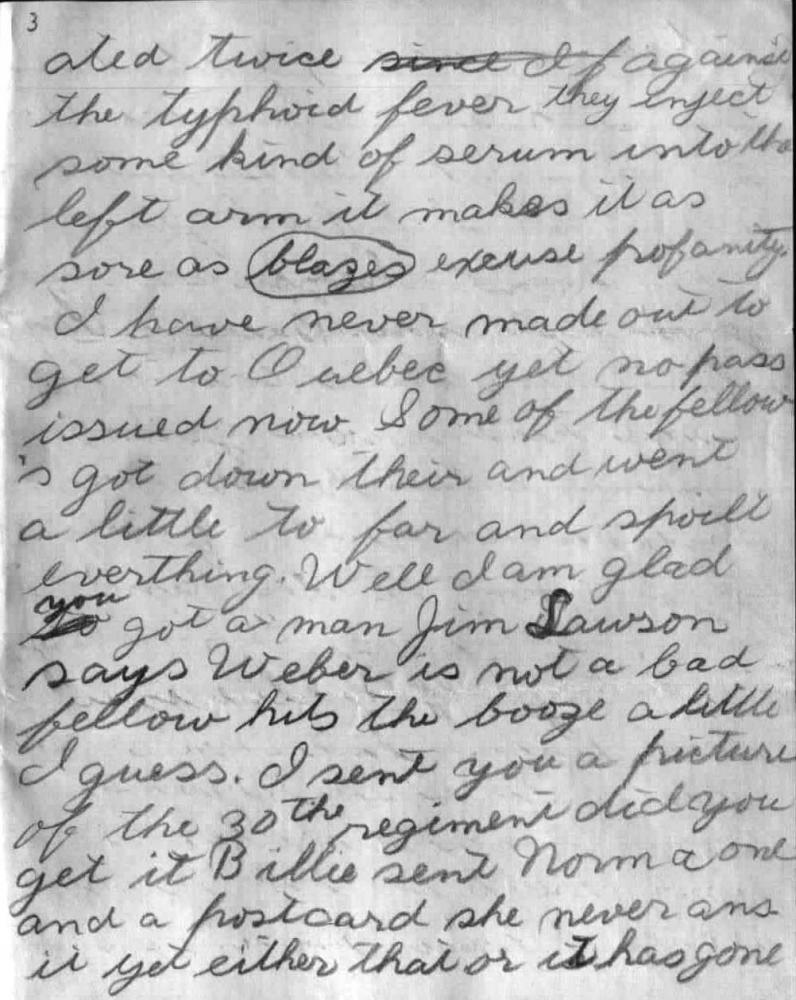 3
ated twice since I against
the typhoid fever they inject
some kind of serum into the
left arm it makes it as
sore as blazes excuse profanity.
I have never made out to
get to Quebec yet no pass
issued now. Some of the fellow
's got down their and went
a little to far and spoilt
everthing. Well I am glad
you got a man Jim Lawson
says Weber is not a bad
fellow hits the booze a little
I guess. I sent you a picture
of the 30th regiment did you
get it Billie sent Norma one
and a postcard she never ans
it yet either that or it has gone